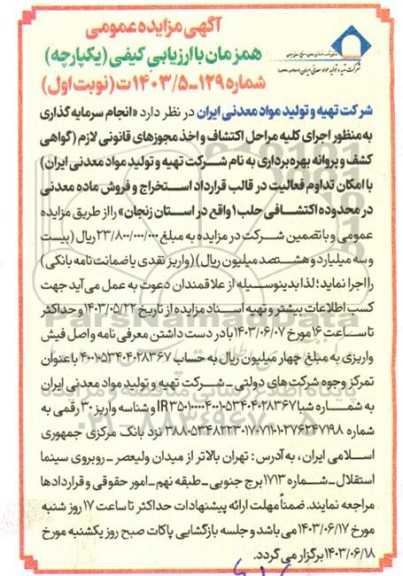 آگهی مزایده عمومی
همزمان با ارزیابی کیفی (یکپارچه)
شماره ۱۲۹-۱۴۰۳/۵ت (نوبت اول)
شرکت تهیه و تولید مواد معدنی ایران در نظر دارد «انجام سرمایه گذاری
به منظور اجرای کلیه مراحل اکتشاف و اخذ مجوزهای قانونی لازم (گواهی
کشف و پروانه بهره برداری به نام شرکت تهیه و تولید مواد معدنی ایران)
با امکان تداوم فعالیت در قالب قرارداد استخراج و فروش ماده معدنی
در محدوده اکتشافی حلب ۱ واقع در استان زنجان» را از طریق مزایده
عمومی و با تضمین شرکت در مزایده به مبلغ ۲۳/۸۰۰/۰۰۰/۰۰۰ ریال (بیست
و سه میلیارد و هشتصد میلیون ریال) (واریز نقدی یا ضمانت نامه بانکی)
را اجرا نماید؛ لذا بدینوسیله از علاقمندان دعوت به عمل می آید جهت
کسب اطلاعات بیشتر و تهیه اسناد مزایده از تاریخ ۱۴۰۳/۰۵/۲۲ و حداکثر
تا ساعت ۱۶ مورخ ۱۴۰۳/۰۶/۰۷ با در دست داشتن معرفی نامه و اصل فیش
واریزی به مبلغ چهار میلیون ریال به حساب ۴۰۰۱۰۵۳۴۰۴۰۲۸۳۶۷ با عنوان
تمرکز وجوه شرکت های دولتی ـ شرکت تهیه و تولید مواد معدنی ایران
به شماره شبا IR۳۵۰۱۰۰۰۰۴۰۰۱۰۵۳۴۰۴۰۲۸۳۶۷ و شناسه واریز ۳۰ رقمی به
شماره ۳۸۸۰۵۳۴۸۲۲۳۰۱۷۰۷۱۱۰۱۰۲۷۶۲۴۷۱۹۸ نزد بانک مرکزی جمهوری
اسلامی ایران، به آدرس: تهران بالاتر از میدان ولیعصر ـ روبروی سینما
استقلال ـ شماره ۱۷۱۳ برج جنوبی ـ طبقه نهم ـ امور حقوقی و قراردادها
مراجعه نمایند. ضمناً مهلت ارائه پیشنهادات حداکثر تا ساعت ۱۷ روز شنبه
مورخ ۱۴۰۳/۰۶/۱۷ می باشد و جلسه بازگشایی پاکات صبح روز یکشنبه مورخ
۱۴۰۳/۰۶/۱۸ برگزار می گردد.